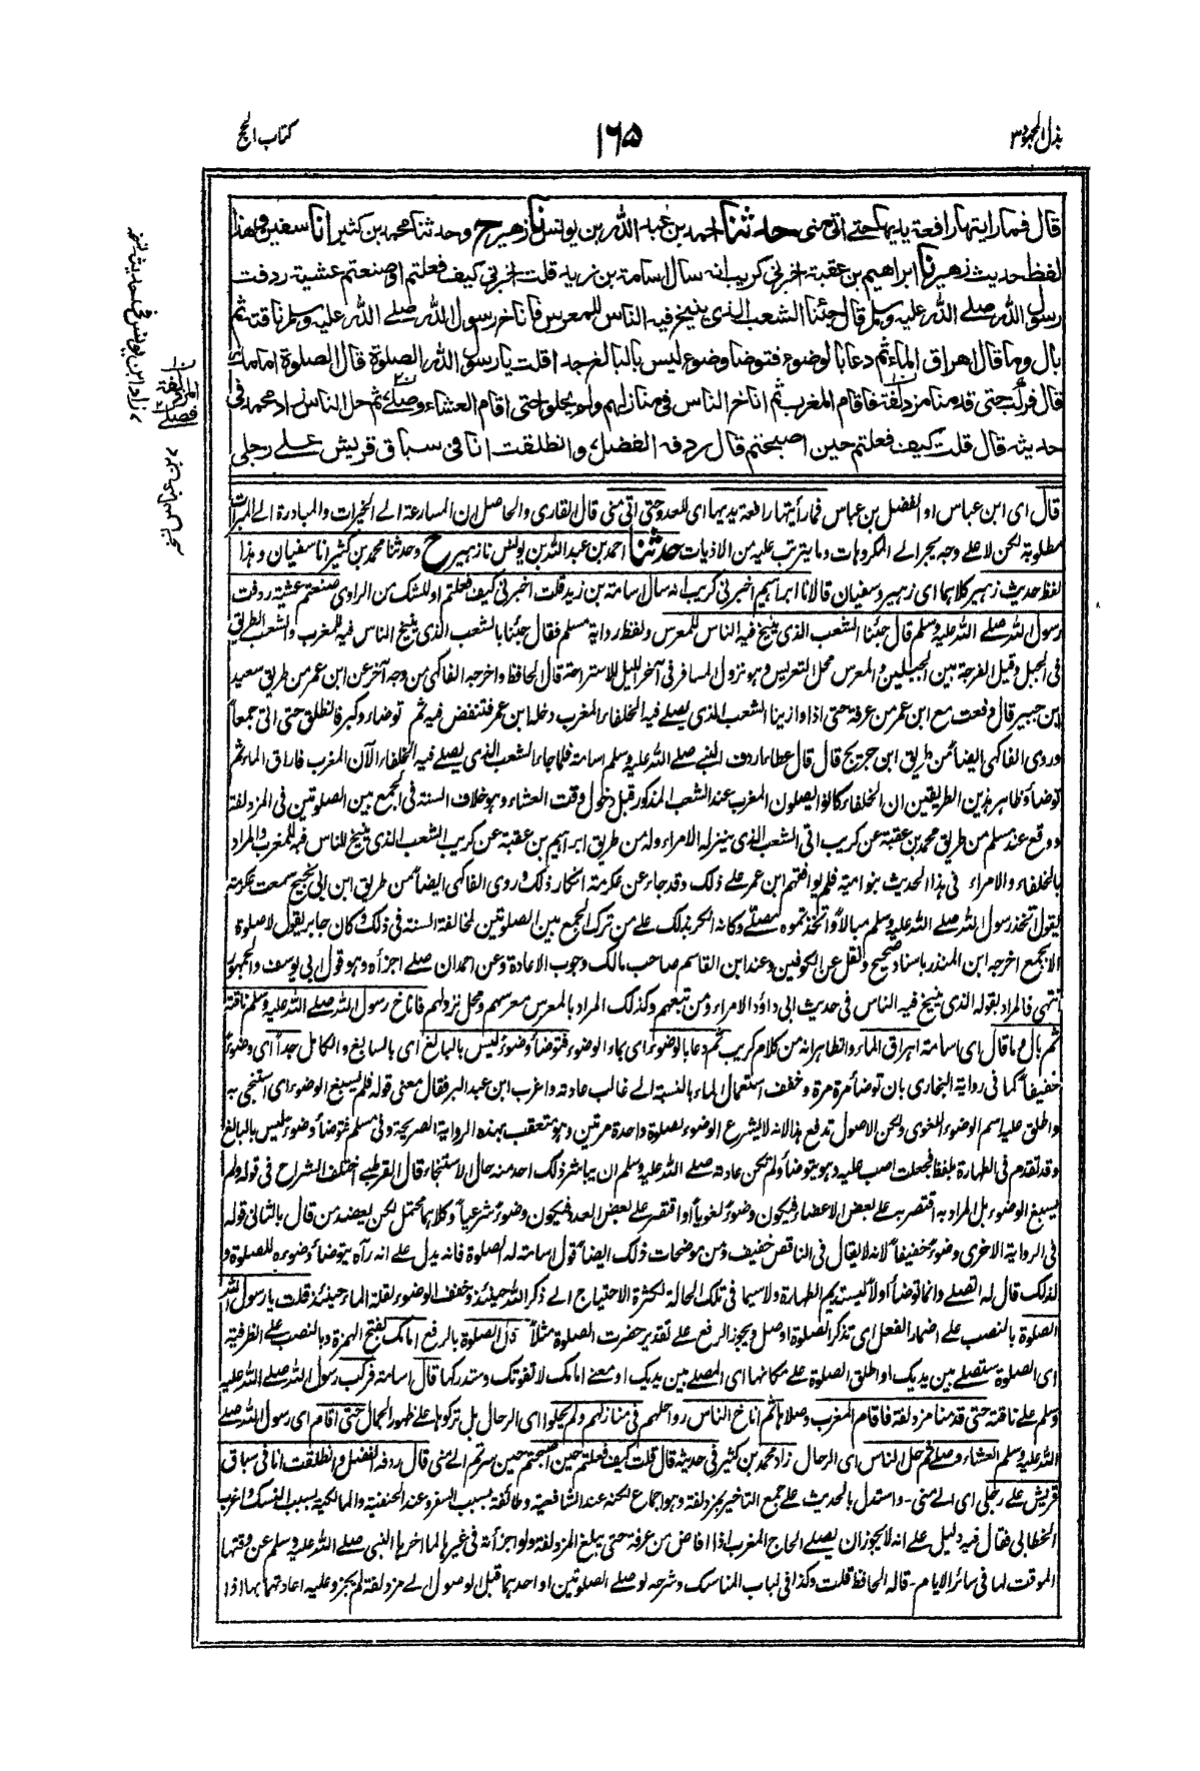 بذل المجهود ٣
١٦٥
كتاب الحج
قال فما رايتها رافعة يديها حتے اتى منى حدثنا احمد بن عبد الله بن يونس نا زهير ح وحدثنا محمد بن كثير انا سفين وهذا
لفظ حديث زهير نا ابراهيم بن عقبة اخبرني كريب انه سال اسامة بن زيد قلت اخبرني كيف فعلتم او صنعتم عشية ردفت
رسول الله صلے الله عليه وسلم قال جئنا الشعب الذى ينيخ فيه الناس للمعرس فاناخ رسول الله صلے الله عليه وسلم ناقته ثم
بال وما قال اهراق الماء ثم دعا بالوضوء فتوضا وضوء ليس بالبالغ جدا قلت يا رسول الله الصلوة قال الصلوة امامك
قال فركب حتى قدمنا مزدلفة فاقام المغرب ثم اناخ الناس في منازلهم ولم يحلوا حتى اقام العشاء وصلے ثم حل الناس زاد محمد فى
حديثه قال قلت كيف فعلتم حين اصبحتم قال ردفه الفضل وانطلقت انا فى سباق قريش علے رجلي
قال اى ابن عباس او الفضل بن عباس فما رأيتها رافعة يديها اى للعدو حتى اتى منى قال القارى والحاصل ان المسارعة الے الخيرات والمبادرة الے المبرات
مطلوبة لكن لا علے وجه يجر الے المكروهات وما يترتب عليه من الاذيات حدثنا احمد بن عبد الله بن يونس نا زهير ح وحدثنا محمد بن كثير انا سفيان وهذا
لفظ حديث زهير كلاهما اى زهير وسفيان قالا نا ابراهيم اخبرنى كريب انه سال اسامة بن زيد قلت اخبرنى كيف فعلتم او للشك من الراوى صنعتم عشية ردفت
رسول الله صلے الله عليه وسلم قال جئنا الشعب الذى ينيخ فيه الناس للمعرس ولفظ رواية مسلم فقال جئنا بالشعب الذى ينيخ الناس فيه للمغرب والشعب الطريق
فى الجبل وقيل الفرجة بين الجبلين والمعرس محل التعريس وهو نزول المسافر فى آخر الليل للاستراحة قال الحافظ واخرجه الفاكهى من وجه آخر عن ابن عمر من طريق سعيد
ابن جبير قال دفعت مع ابن عمر من عرفة حتى اذا وازينا الشعب الذى يصلے فيه الخلفاء المغرب دخله ابن عمر فتنفض فيه ثم توضاء وكبر فانطلق حتى اتى جمعاً
وروى الفاكهى ايضا من طريق ابن جريج قال قال عطاء اردف النبى صلے الله عليه وسلم اسامة فلما جاء الشعب الذى يصلے فيه الخلفاء الآن المغرب فاراق الماء ثم
توضأ وظاهر هذين الطريقين ان الخلفاء كانوا يصلون المغرب عند الشعب المذكور قبل دخول وقت العشاء وهو خلاف السنة فى الجمع بين الصلوتين فى المزدلفة
ووقع عند مسلم من طريق محمد بن عقبة عن كريب اتى الشعب الذى ينزله الامراء وله من طريق ابراهيم بن عقبة عن كريب الشعب الذى ينيخ للناس فيه للمغرب والمراد
بالخلفاء والامراء فى هذا الحديث بنو امية فلم يوافقهم ابن عمر على ذلك وقد جاء عن عكرمة انكار ذلك وروى الفاكهى ايضا من طريق ابن ابى نجيح سمعت عكرمة
يقول اتخذه رسول الله صلے الله عليه وسلم مبالا واتخذتموه مصلے وكانه انكر بذلك على من ترك الجمع بين الصلوتين لمخالفة السنة فى ذلك وكان جابر يقول لا صلوة
الا بجمع اخرجه ابن المنذر باسناد صحيح ونقل عن الكوفين وعند ابن القاسم صاحب مالك وجوب الاعادة وعن احمد ان صلے اجزأه وهو قول ابى يوسف والجمهور
انتهى فالمراد بقوله الذى ينيخ فيه الناس فى حديث ابى داؤد الامراء ومن تبعهم وكذلك المراد بالمعرس معرسهم ومحل نزولهم فاناخ رسول الله صلے الله عليه وسلم ناقته
ثم بال وما قال اى اسامة اهراق الماء والظاهر انه من كلام كريب ثم دعا بالوضوء اى بماء الوضوء فتوضأ وضوء ليس بالبالغ اى بالسابغ والكامل جداً اى وضوءً
خفيفاً كما فى رواية البخارى بان توضأ مرة مرة وخفف استعمال الماء بالنسبة الے غالب عادته واغرب ابن عبد البر فقال معنى قوله فلم يسبغ الوضوء اى استنجى به
واطلق عليه اسم الوضوء اللغوى ولكن الاصول تدفع هذا لانه لا يشرع الوضوء لصلوة واحدة مرتين وهو متعقب بهذه الرواية الصريحة وفى مسلم فتوضأ وضوء ليس بالبالغ
وقد تقدم فى الطهارة بلفظ فجعلت اصب عليه وهو يتوضأ ولم تكن عادته صلے الله عليه وسلم ان يباشر ذلك احد منه حال الاستنجاء قال القرطبى اختلف الشراح فى قوله ولم
يسبغ الوضوء هل المراد به اقتصر به على بعض الاعضاء فيكون وضوءً لغوياً او اقتصر على بعض العدد فيكون وضوءً شرعياً وكلاهما محتمل لكن يعضد من قال بالثانى قوله
فى الرواية الاخرى وضوءً خفيفاً لانه لا يقال فى الناقص خفيف ومن موضحات ذلك ايضاً قول اسامة له الصلوة فانه يدل على انه رآه يتوضأ وضوءه للصلوة و
لذلك قال له اتصلے وانما توضأ اولاً ليستديم الطهارة ولا سيما فى تلك الحالة لكثرة الاحتياج الے ذكر الله حينئذ وخفف الوضوء لقلة الماء حينئذ قلت يا رسول الله
الصلوة بالنصب على اضمار الفعل اى تذكر الصلوة او صل ويجوز الرفع على تقدير حضرت الصلوة مثلاً قال الصلوة بالرفع امامك بفتح الهمزة وبالنصب على الظرفية
اى الصلوة ستصلے بين يديك او اطلق الصلوة على مكانها اى المصلے بين يديك او معنى امامك لا تفوتك وستدركها قال اسامة فركب رسول الله صلے الله عليه
وسلم على ناقته حتى قدمنا مزدلفة فاقام المغرب وصلاها ثم اناخ الناس رواحلهم فى منازلهم ولم يحلوا اى الرحال بل تركوها على ظهور الجمال حتى اقام اى رسول الله صلے
الله عليه وسلم العشاء وصلے ثم حل الناس اى الرحال زاد محمد بن كثير فى حديثه قال قلت كيف فعلتم حين اصبحتم حين سرتم الے منى قال ردفه الفضل وانطلقت انا فى سباق
قريش على رجلى اى الے منى - واستدل بالحديث على جمع التاخير بمزدلفة وهو اجماع لكنه عند الشافعية وطائفة بسبب السفر وعند الحنفية والمالكية بسبب النسك واغرب
الخطابى فقال فيه دليل على انه لا يجوز ان يصلے الحاج المغرب اذا افاض من عرفة حتى يبلغ المزدلفة ولو اجزأته فى غيرها لما اخرها النبى صلے الله عليه وسلم عن وقتها
الموقت لها فى سائر الايام - قاله الحافظ قلت وكذا فى لباب المناسك وشرحه لو صلے الصلوتين او احدهما قبل الوصول الے مزدلفة لم يجز وعليه اعادتها بها اذا